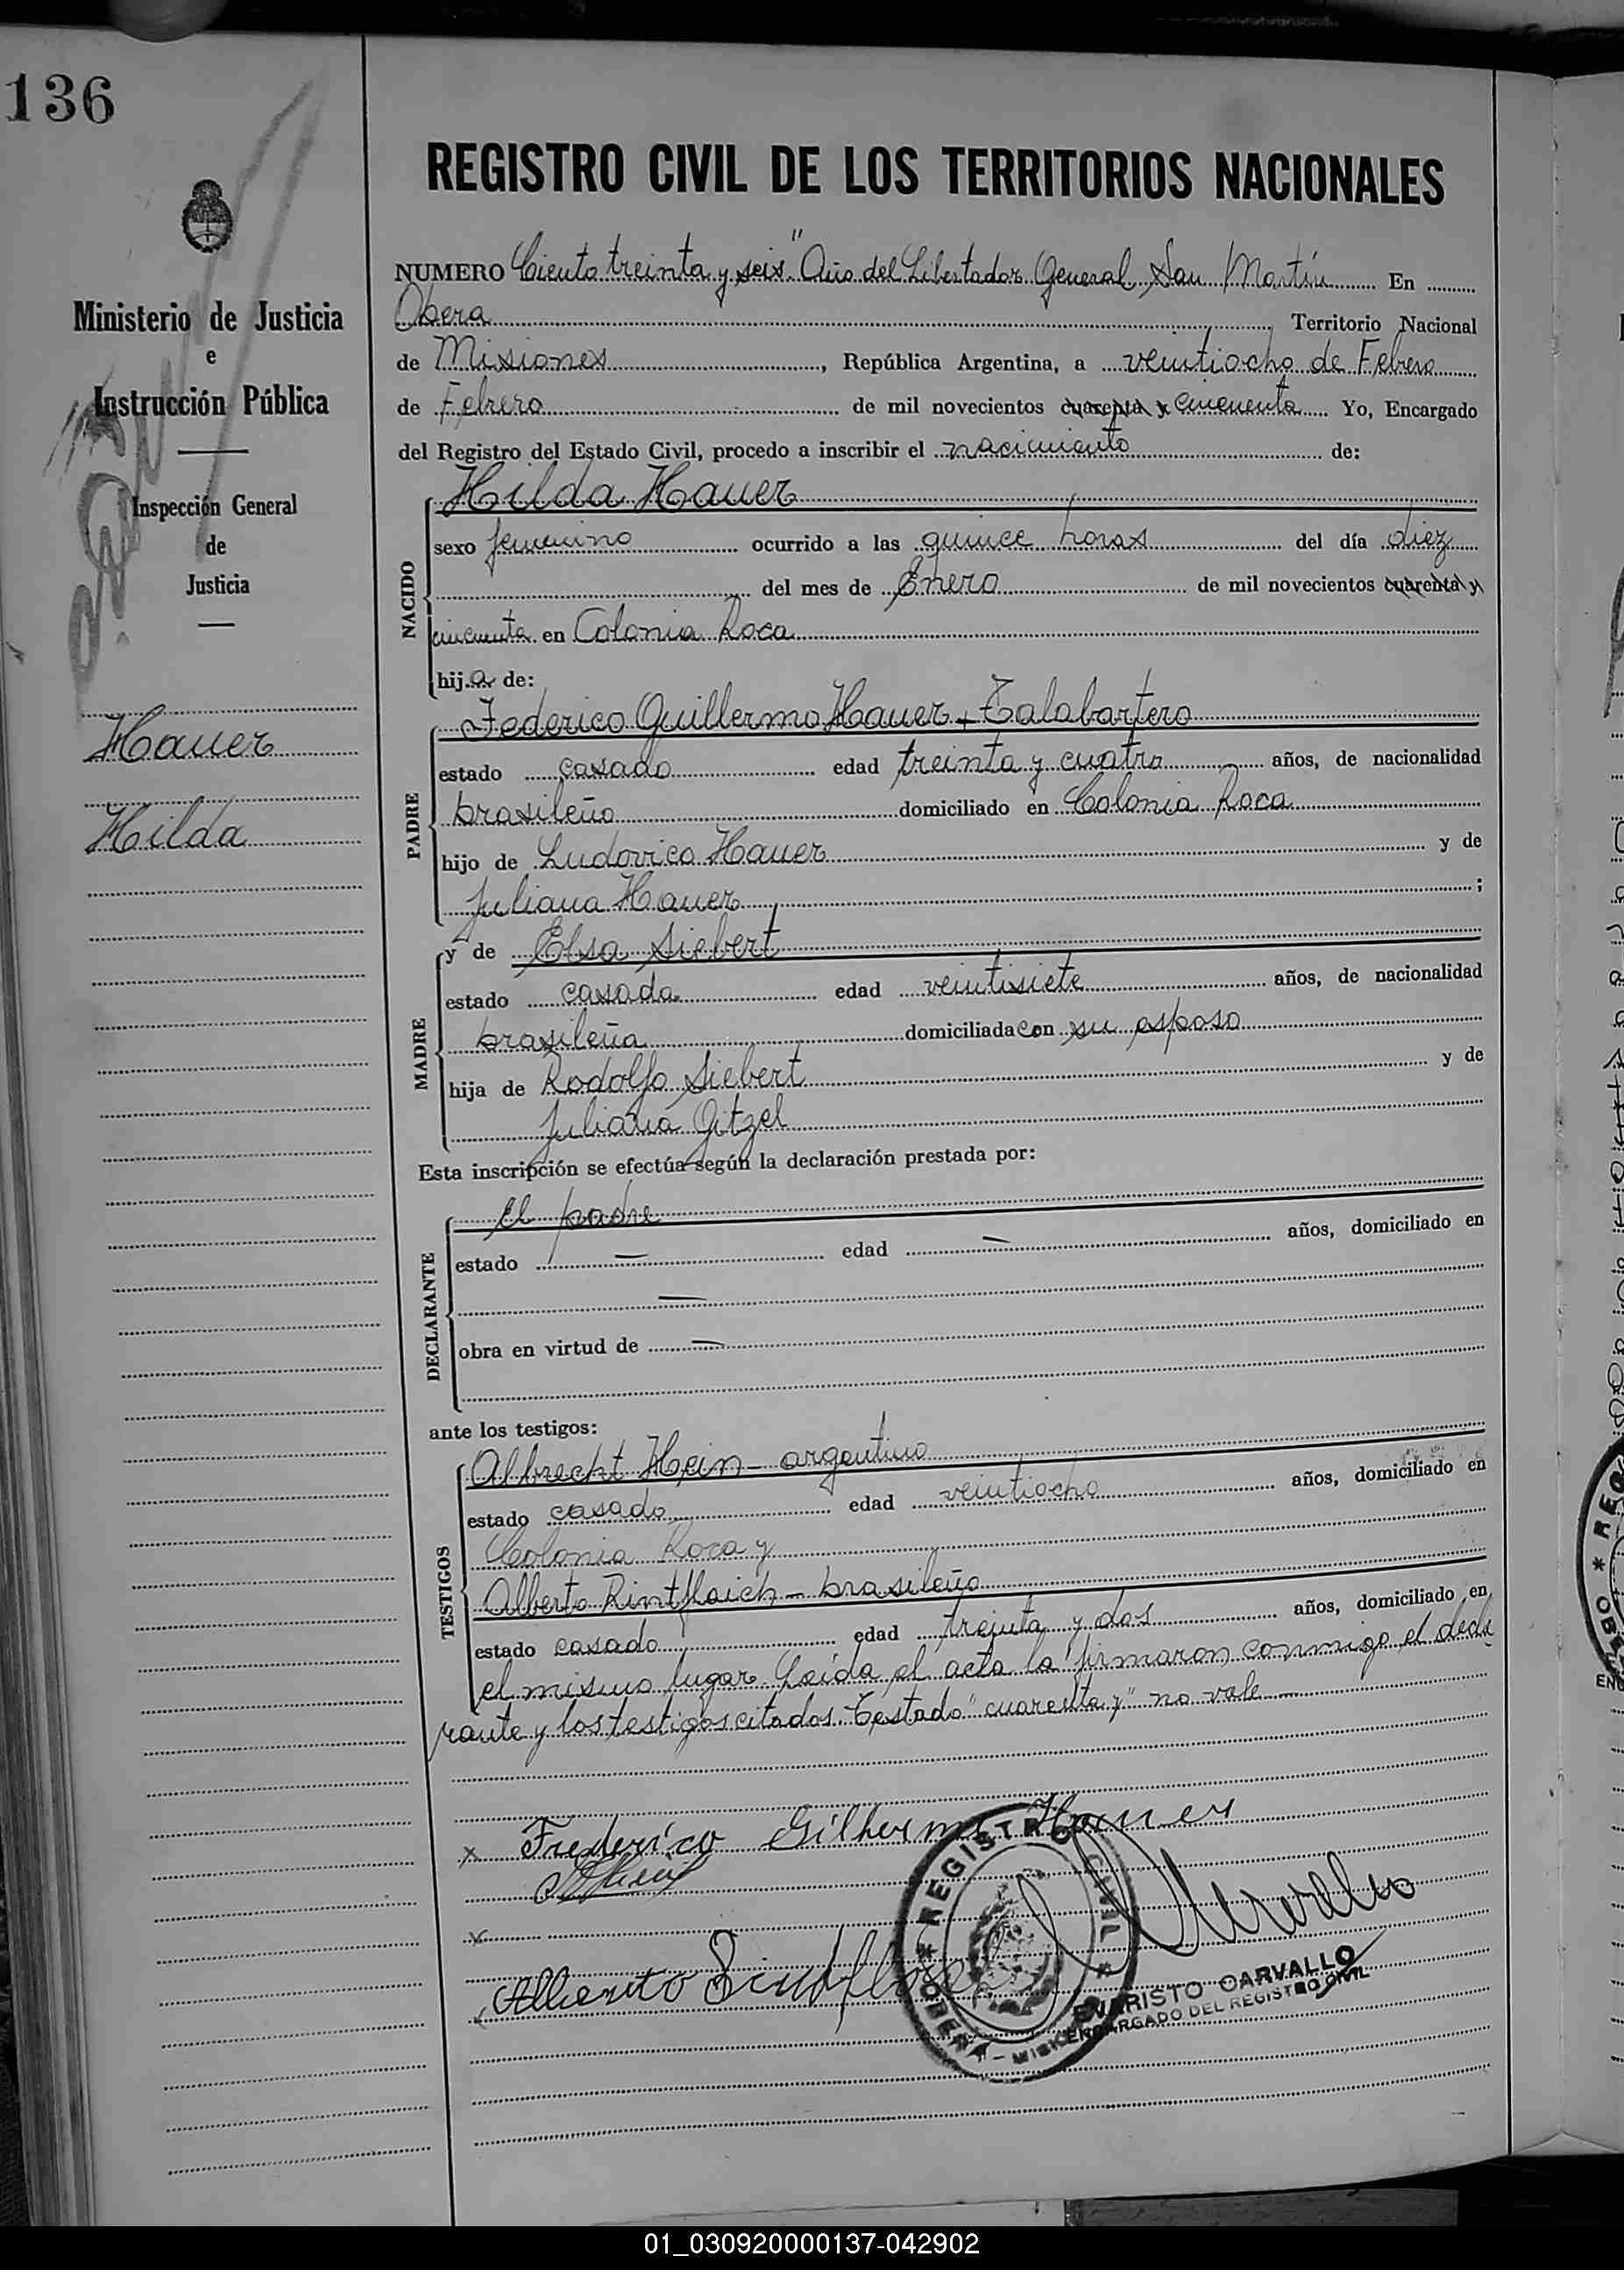 136
REGISTRO CIVIL DE LOS TERRITORIOS NACIONALES
NUMERO Ciento treinta y seis "Año del Libertador General San Martín En
Obera Territorio Nacional
de Misiones, República Argentina, a veintiocho de Febrero
de Febrero de mil novecientos cuarenta y cincuenta Yo, Encargado
del Registro del Estado Civil, procedo a inscribir el nacimiento de:
Ministerio de Justicia
e
Instrucción Pública
Inspección General
de
Justicia
Hauer
Hilda
NACIDO
Hilda Hauer
sexo femenino ocurrido a las quince horas del día diez
del mes de Enero de mil novecientos cuarenta y
cincuenta en Colonia Roca
hija de:
PADRE
Federico Guillermo Hauer - Talabartero
estado casado edad treinta y cuatro años, de nacionalidad
brasileño domiciliado en Colonia Roca
hijo de Ludovico Hauer y de
Juliana Hauer ;
MADRE
y de Elsa Siebert
estado casada edad veintisiete años, de nacionalidad
brasileña domiciliada con su esposo
hija de Rodolfo Siebert y de
Juliana Gitzel
Esta inscripción se efectúa según la declaración prestada por:
DECLARANTE
el padre
estado — edad — años, domiciliado en
—
obra en virtud de —
ante los testigos:
TESTIGOS
Albrecht Hein - argentino
estado casado edad veintiocho años, domiciliado en
Colonia Roca y
Alberto Rintflaich - brasileño
estado casado edad treinta y dos años, domiciliado en
el mismo lugar. Leída el acta la firmaron conmigo el decla
rante y los testigos citados. Testado "cuarenta y" no vale —
x Frederico Gilherme Hauer
AHein
x
Alberto
REGISTRO CIVIL * OBERA - MISIONES *
EVARISTO CARVALLO
ENCARGADO DEL REGISTRO CIVIL
01_030920000137-042902